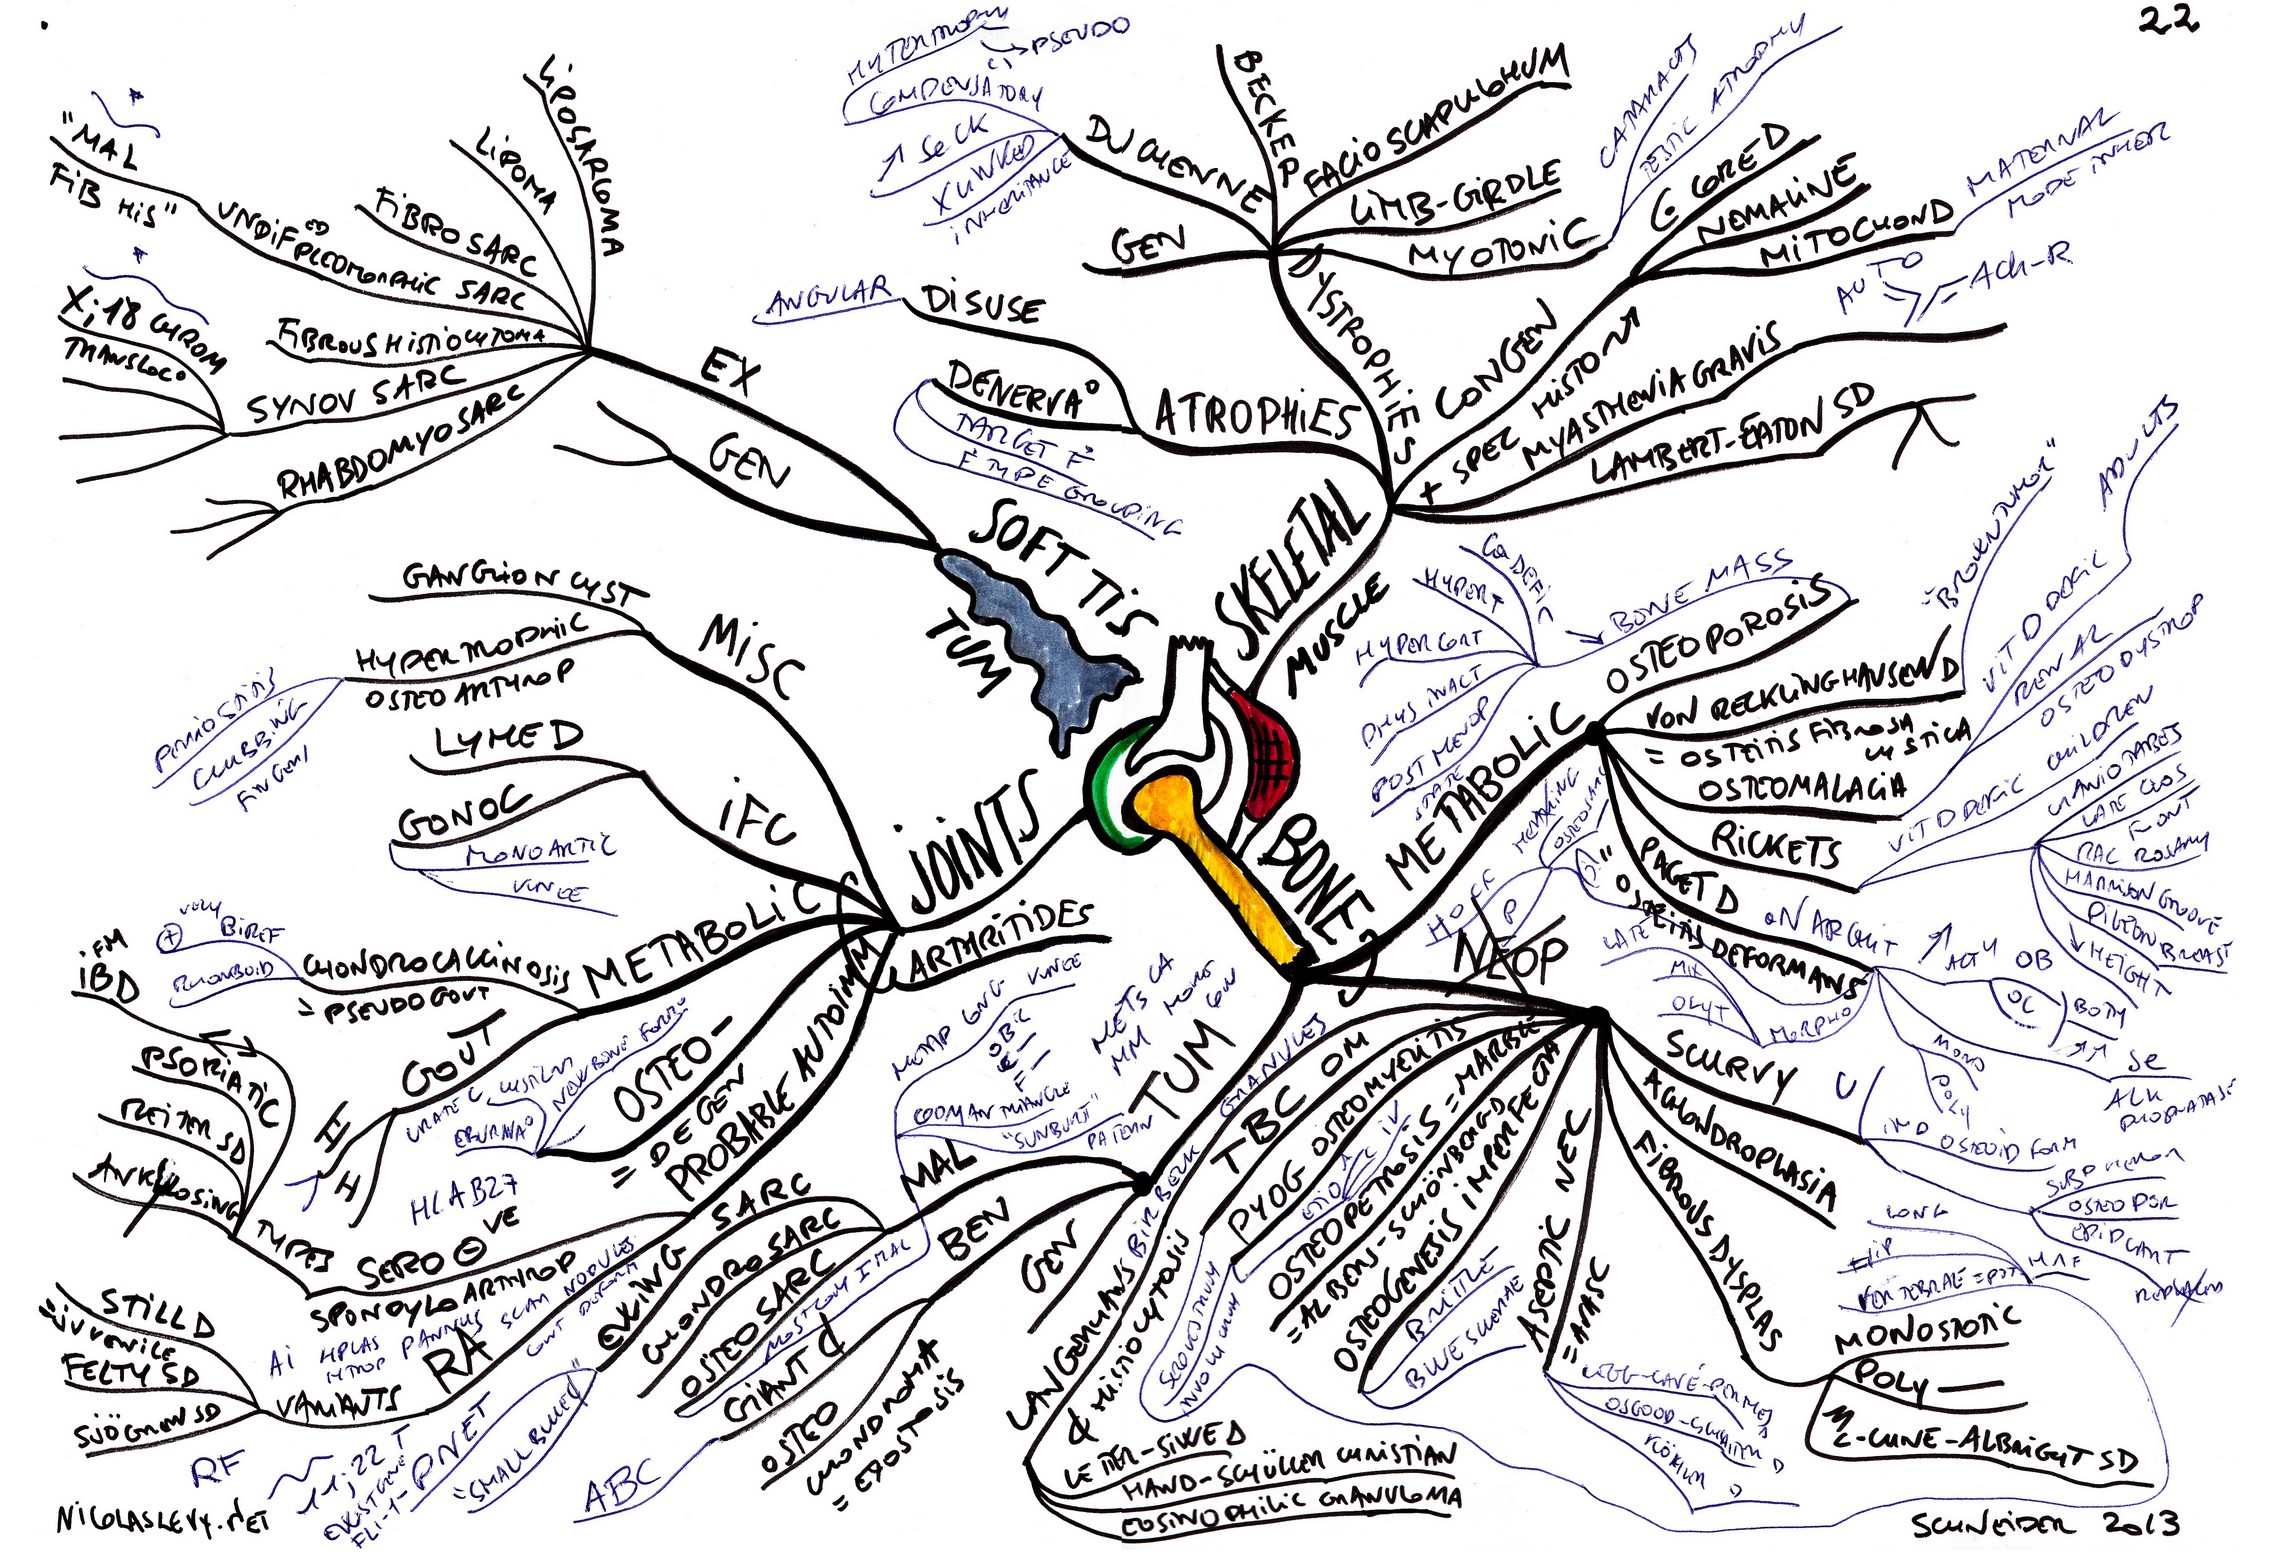 22
SOFT TIS
TUM
EX
LIPOSARCOMA
LIPOMA
FIBROSARC
UNDIFF^ED PLEOMORPHIC SARC
"MAL
FIB HIS"
FIBROUS HISTIOCYTOMA
SYNOV SARC
X;18 CHROM
TRANSLOC°
RHABDOMYOSARC
GEN
SKELETAL
MUSCLE
ATROPHIES
DISUSE
ANGULAR
DENERVA°
TARGET F°
F TYPE GROUPING
DYSTROPHIES
GEN
DUCHENNE
COMPENSATORY
PSEUDO
↗ SeCK
X LINKED
INHERITANCE
BECKER
FACIOSCAPULOHUM
LIMB-GIRDLE
MYOTONIC
CATARACTS
TESTIC ATROPHY
CONGEN
+ SPEC HISTON
C CORE D
NEMALINE
MITOCHOND
MATERNAL
MODE INHER
MYASTHENIA GRAVIS
AUTO
ACh-R
LAMBERT-EATON SD
BONE
METABOLIC
OSTEOPOROSIS
BONE MASS
Ca DEFIC
HYPERT
HYPERCORT
PHYS INACT
POSTMENOP
STATE
VON RECKLINGHAUSEN D
= OSTEITIS FIBROSA
CYSTICA
"BROWN TUMOR"
OSTEOMALACIA
VIT D DEFIC
ADULTS
RENAL
OSTEODYSTROP
RICKETS
VIT D DEFIC CHILDREN
CRANIOTABES
LATE CLOS
FONT
RAC ROSARY
HARRISON GROOVE
PIGEON BREAST
↓ HEIGHT
PAGET D
OSTEITIS DEFORMANS
ON ARCHIT
LATE
MIX
OLYT
MORPHO
ACTY OB
OC
BODY
MONO
POLY
Se
ALK
PHOSPHATASE
NEOP
SCURVY
C
OSTEOID FORM
SUBP
OSTEOPOR
ACHONDROPLASIA
FIBROUS DYSPLAS
MONOSTOTIC
POLY —
Mc-CUNE-ALBRIGHT SD
LONG
HIP
VERTEBRAE
ASEPTIC NEC
= AVASC
LEGG-CALVÉ-PERTHES D
OSGOOD-SCHLATTER D
KÖHLER D
OSTEOGENESIS IMPERFECTA
BRITTLE
BLUE SCLERAE
OSTEOPETROSIS = MARBLE
= ALBERS-SCHÖNBERG D
PYOG OSTEOMYELITIS
SEQUESTRUM
INVOLUCRUM
TBC OM
LANGERHANS
C HISTIOCYTOSIS
BIRBECK
GRANULES
LETTER-SIWE D
HAND-SCHÜLLER CHRISTIAN
EOSINOPHILIC GRANULOMA
TUM
GEN
BEN
OSTEO
CHONDROMA
= EXOSTOSIS
GIANT C
ABC
MAL
OSTEOSARC
METAP LONG
KNEE
CODMAN TRIANGLE
"SUNBURST"
PATERN
METS CA
MM
CHONDROSARC
EWING SARC
11;22 T
FLI-1-
PNET
= "SMALL BLUE C"
JOINTS
ARTHRITIDES
MISC
GANGLION CYST
HYPERTROPHIC
OSTEOARTHROP
PERIOSTITIS
CLUBBING
FINGERS
IFC
LYME D
GONOC
MONOARTIC
KNEE
METABOLIC
CHONDROCALCINOSIS
= PSEUDOGOUT
BIREF
RHOMBOID
GOUT
II
I
URATE C
OSTEO-
= DEGEN
EBURNA°
NEW BONE FORM°
PROBABLE AUTOIMM
SERO ⊖ VE
SPONDYLOARTHROP
HLA B27
TYPES
ANKYLOSING
REITER SD
PSORIATIC
IBD
RA
AI
HPLAS
HTROP
PANNUS
NODULES
VARIANTS
STILL D
= JUVENILE
FELTY SD
SJÖGREN SD
RF
NICOLASLEVY.NET
SCHNEIDER 2013